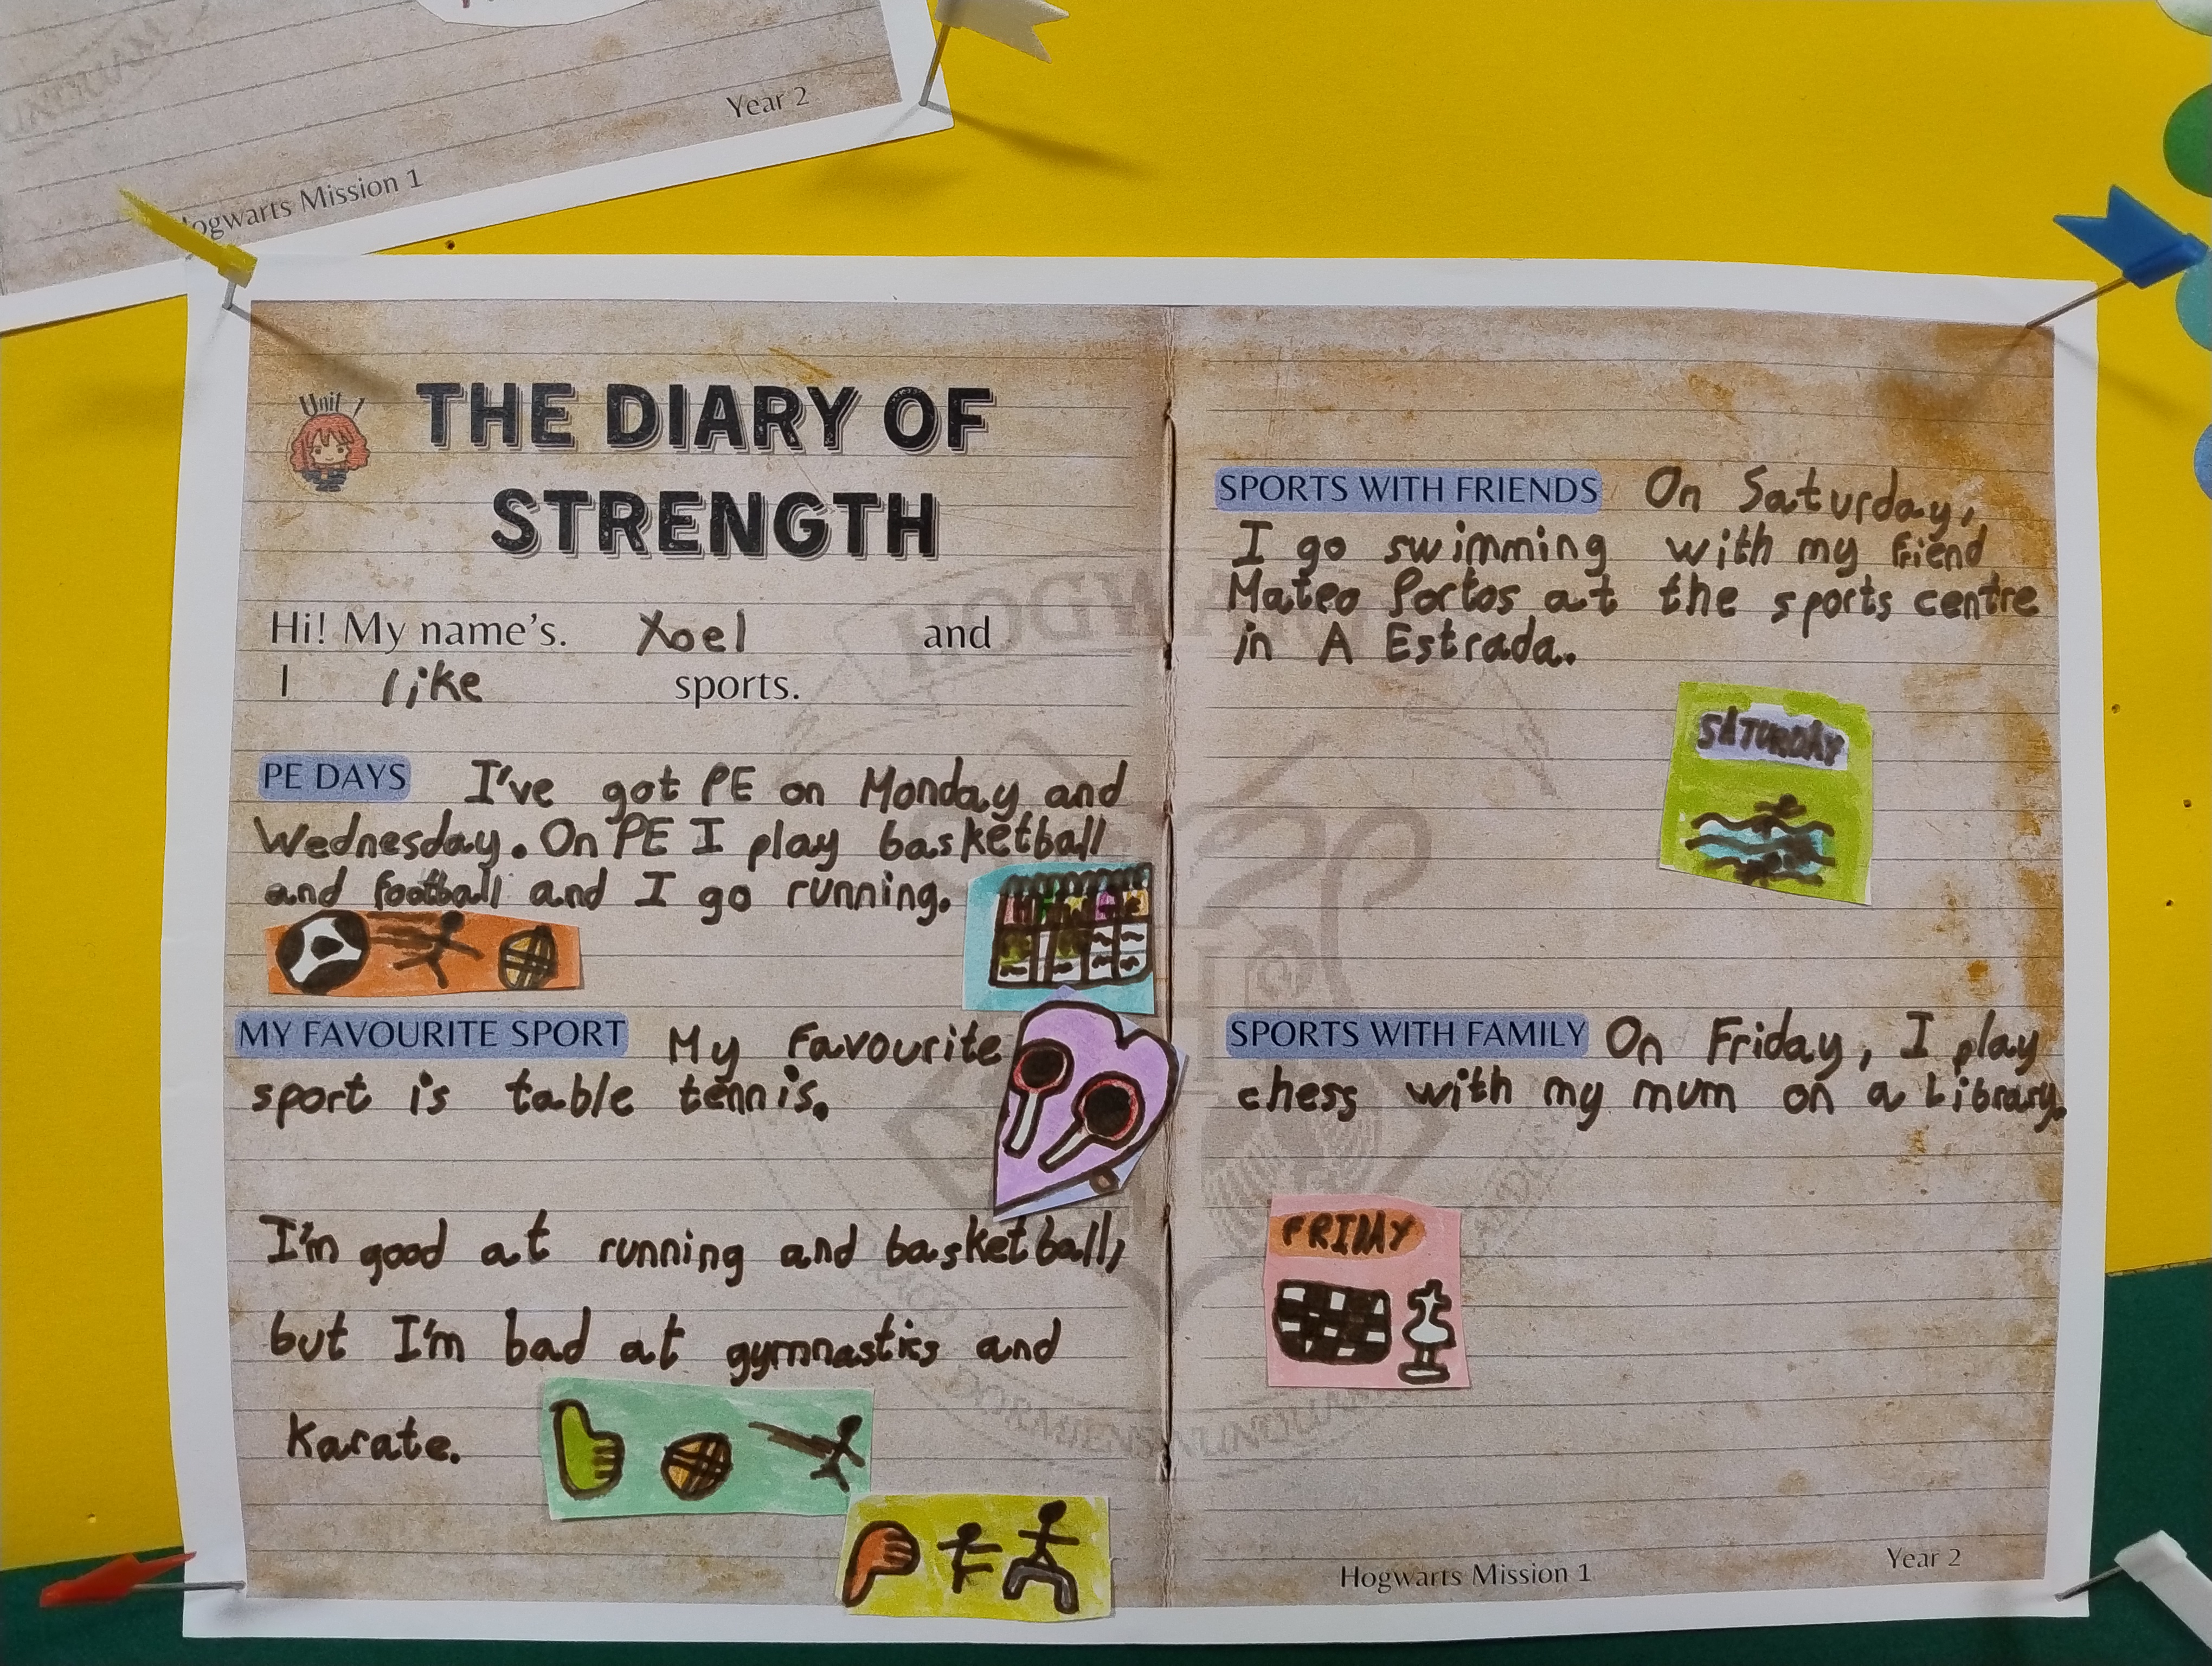 Year 2
Hogwarts Mission 1
Unit 1
THE DIARY OF
STRENGTH
Hi! My name's. Xoel and
I like sports.
PE DAYS I've got PE on Monday and
Wednesday. On PE I play basketball
and football and I go running.
MY FAVOURITE SPORT My favourite
sport is table tennis.
I'm good at running and basketball,
but I'm bad at gymnastics and
karate.
SPORTS WITH FRIENDS On Saturday,
I go swimming with my friend
Mateo Portos at the sports centre
in A Estrada.
SATURDAY
SPORTS WITH FAMILY On Friday, I play
chess with my mum on a library.
FRIDAY
Hogwarts Mission 1
Year 2